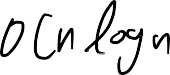 O(n log n